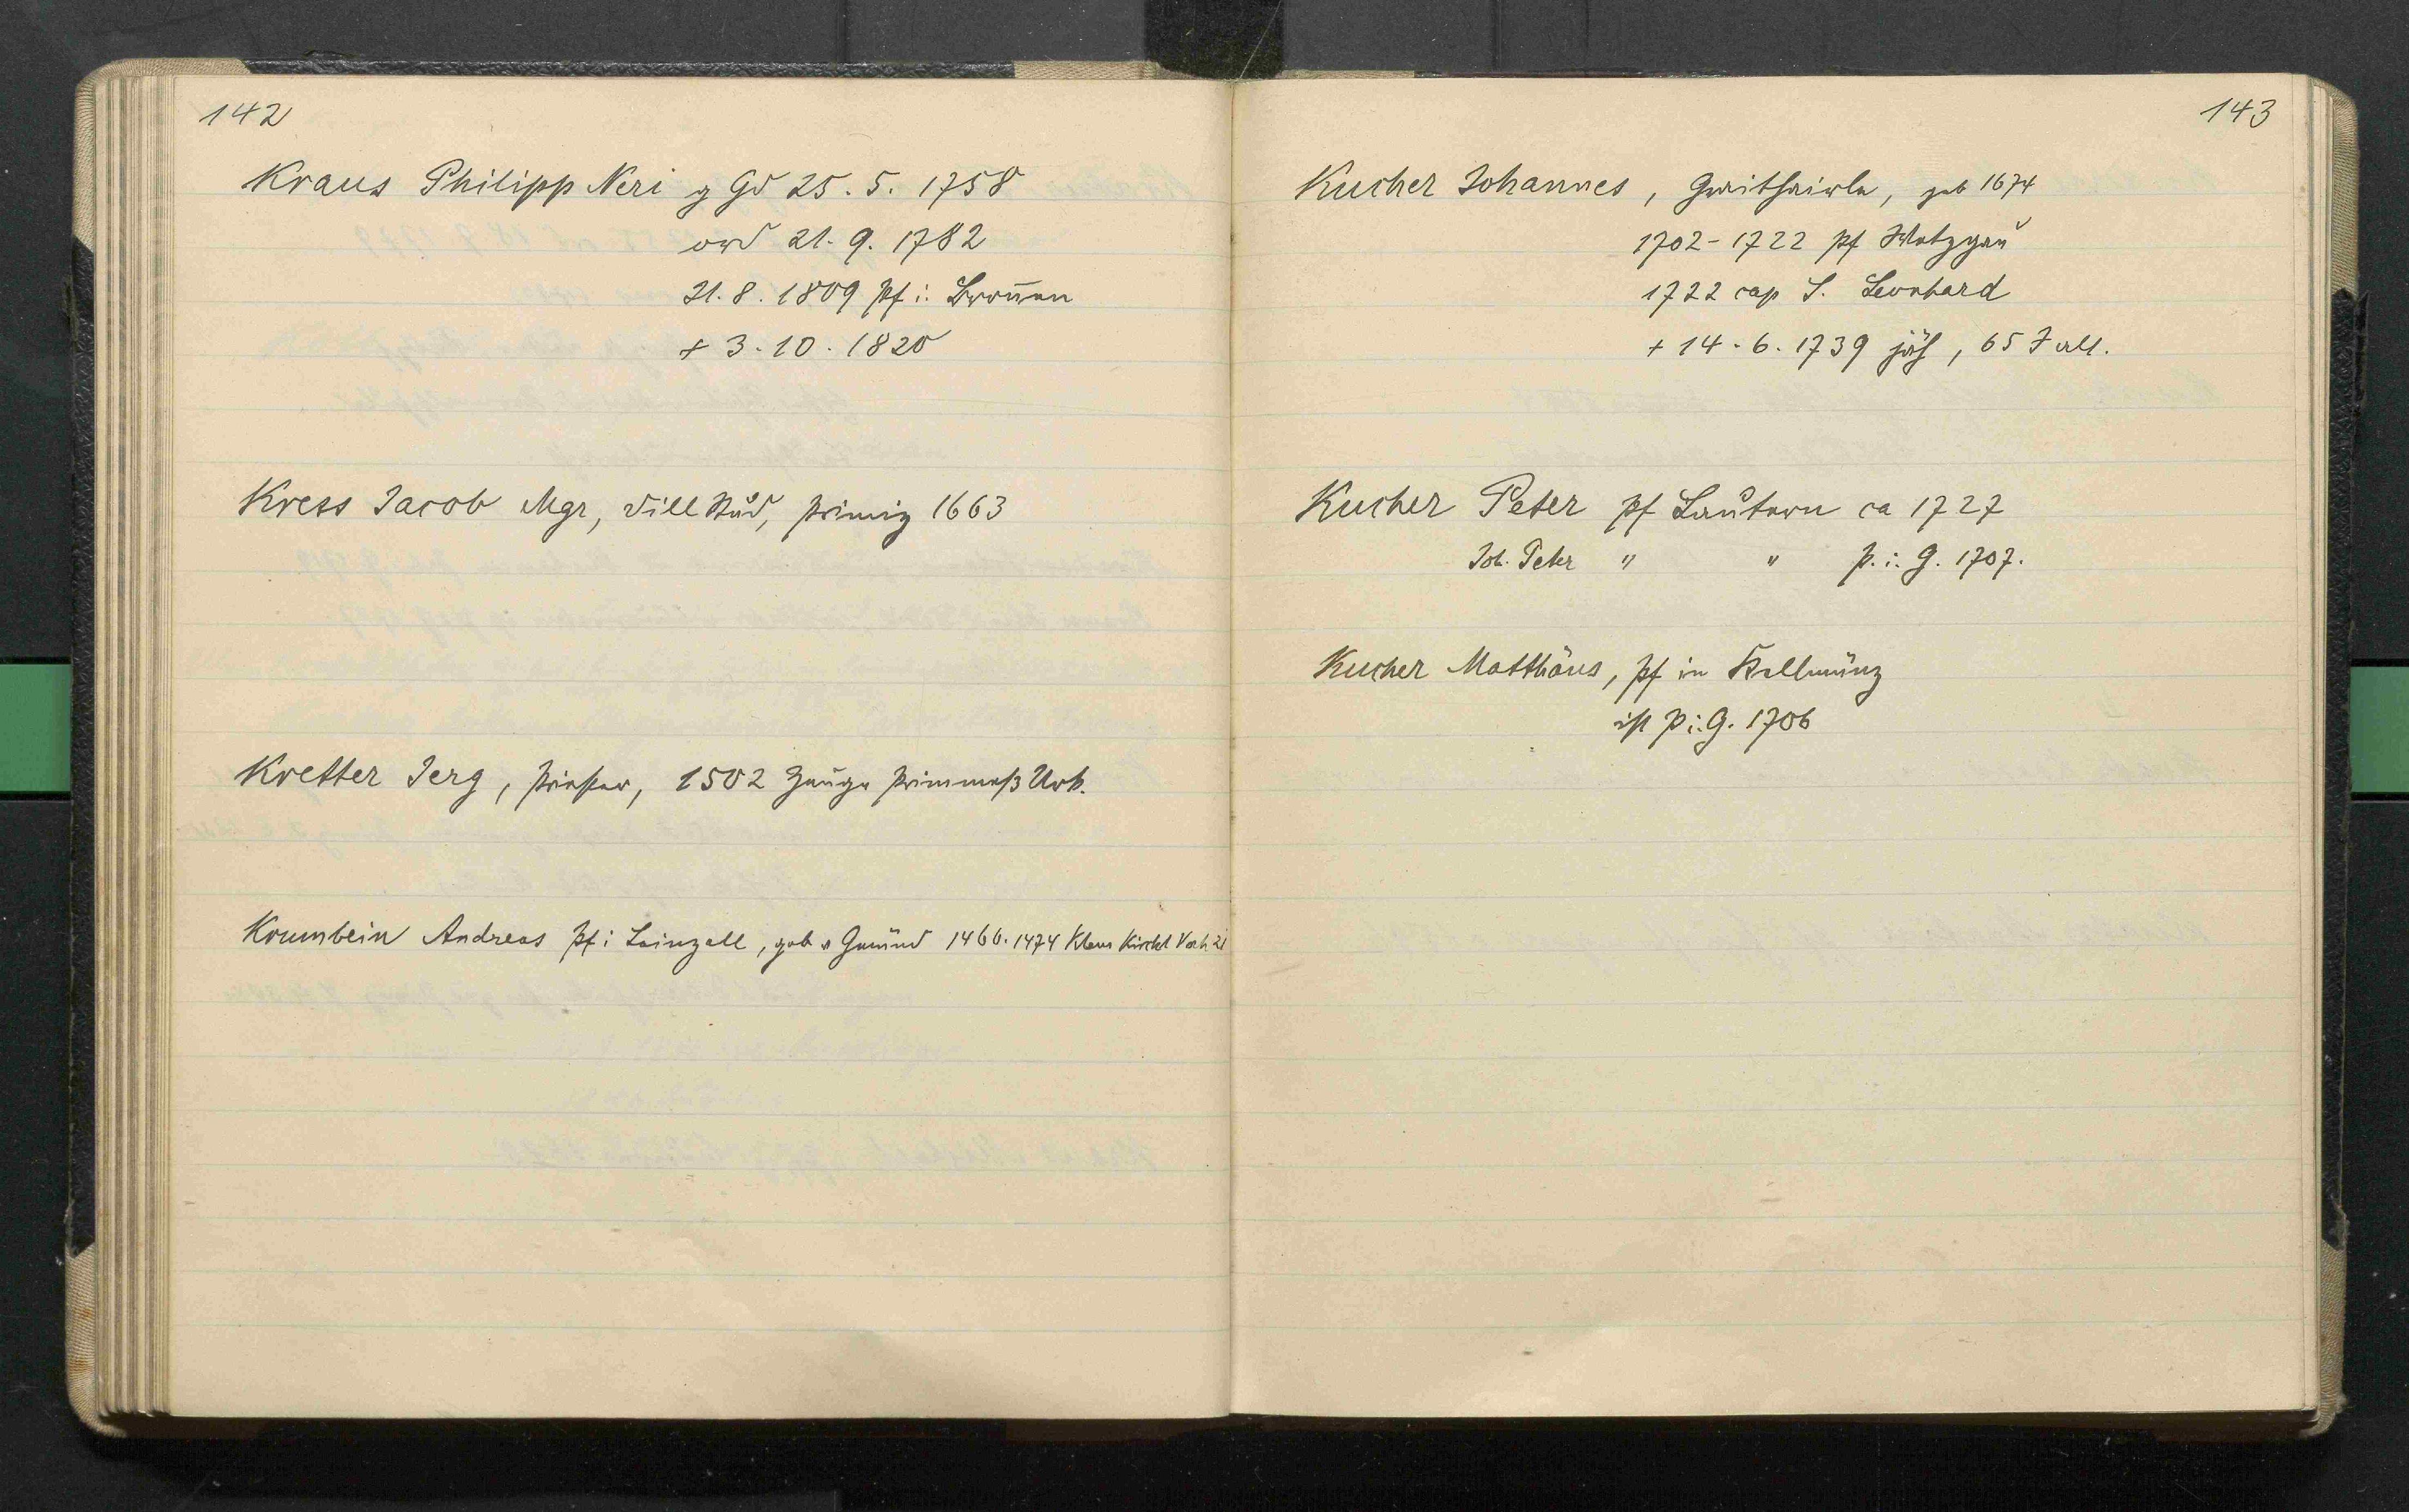 142
Kraus Philipp Neri z Gd 25. 5. 1758
ord 21. 9. 1782
21. 8. 1809 pf i. Bronnen
+ 3. 10. 1820
Kress Jacob Mgr, Dill Stud, primiz 1663
Kretter Jerg, Priester, 1502 Zeuge Urk.
Krumbein Andreas pf i Leinzell, geb v Gmünd 1466. 1474 Klaus Kirchl
143
Kucher Johannes, geb 1674
1702-1722 pf Wetzgau
1722 cap S. Leonhard
+ 14. 6. 1739 jäh, 65 J alt.
Kucher Peter pf Lautern ca 1727
Joh. Peter " " p. i. G. 1707.
Kucher Matthäus, pf in Kellmünz
ist p i. G. 1706